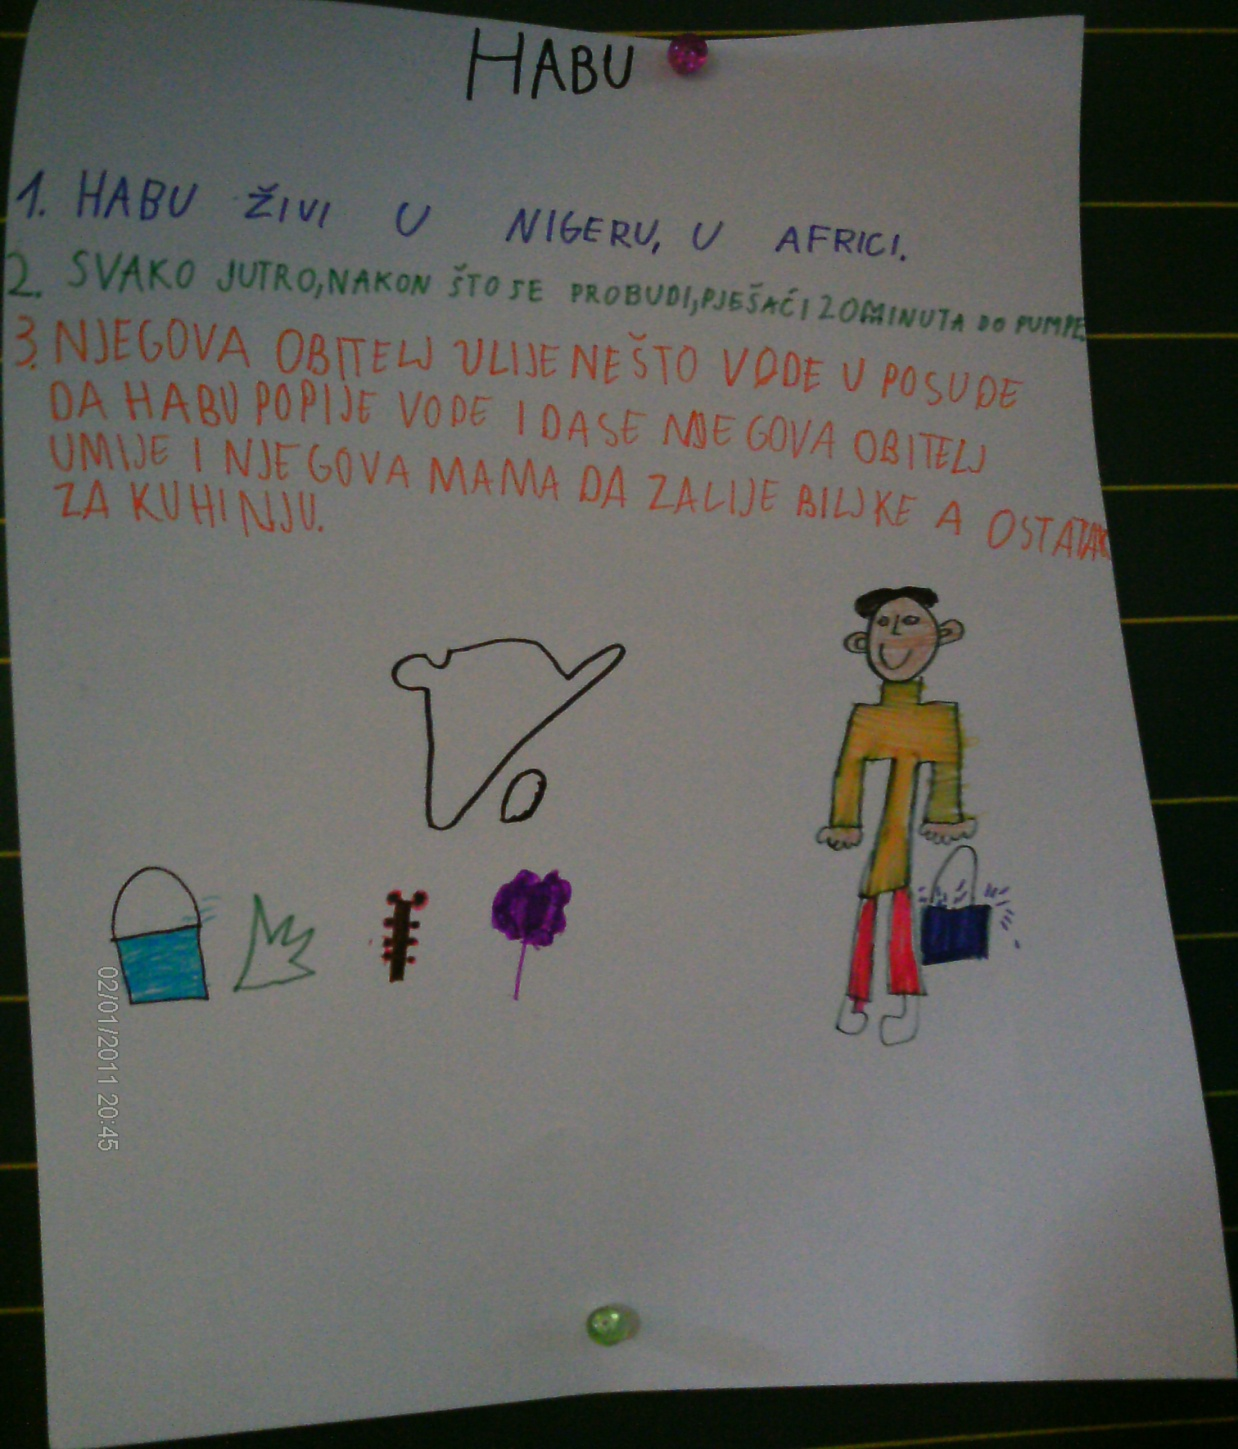 HABU
1. HABU ŽIVI U NIGERU, U AFRICI.
2. SVAKO JUTRO, NAKON ŠTO SE PROBUDI, PJEŠAČI 20 MINUTA DO PUMPE
3. NJEGOVA OBITELJ ULIJE NEŠTO VODE U POSUDE
DA HABU POPIJE VODE I DA SE NJEGOVA OBITELJ
UMIJE I NJEGOVA MAMA DA ZALIJE BILJKE A OSTATAK
ZA KUHINJU.
02/01/2011 20:45